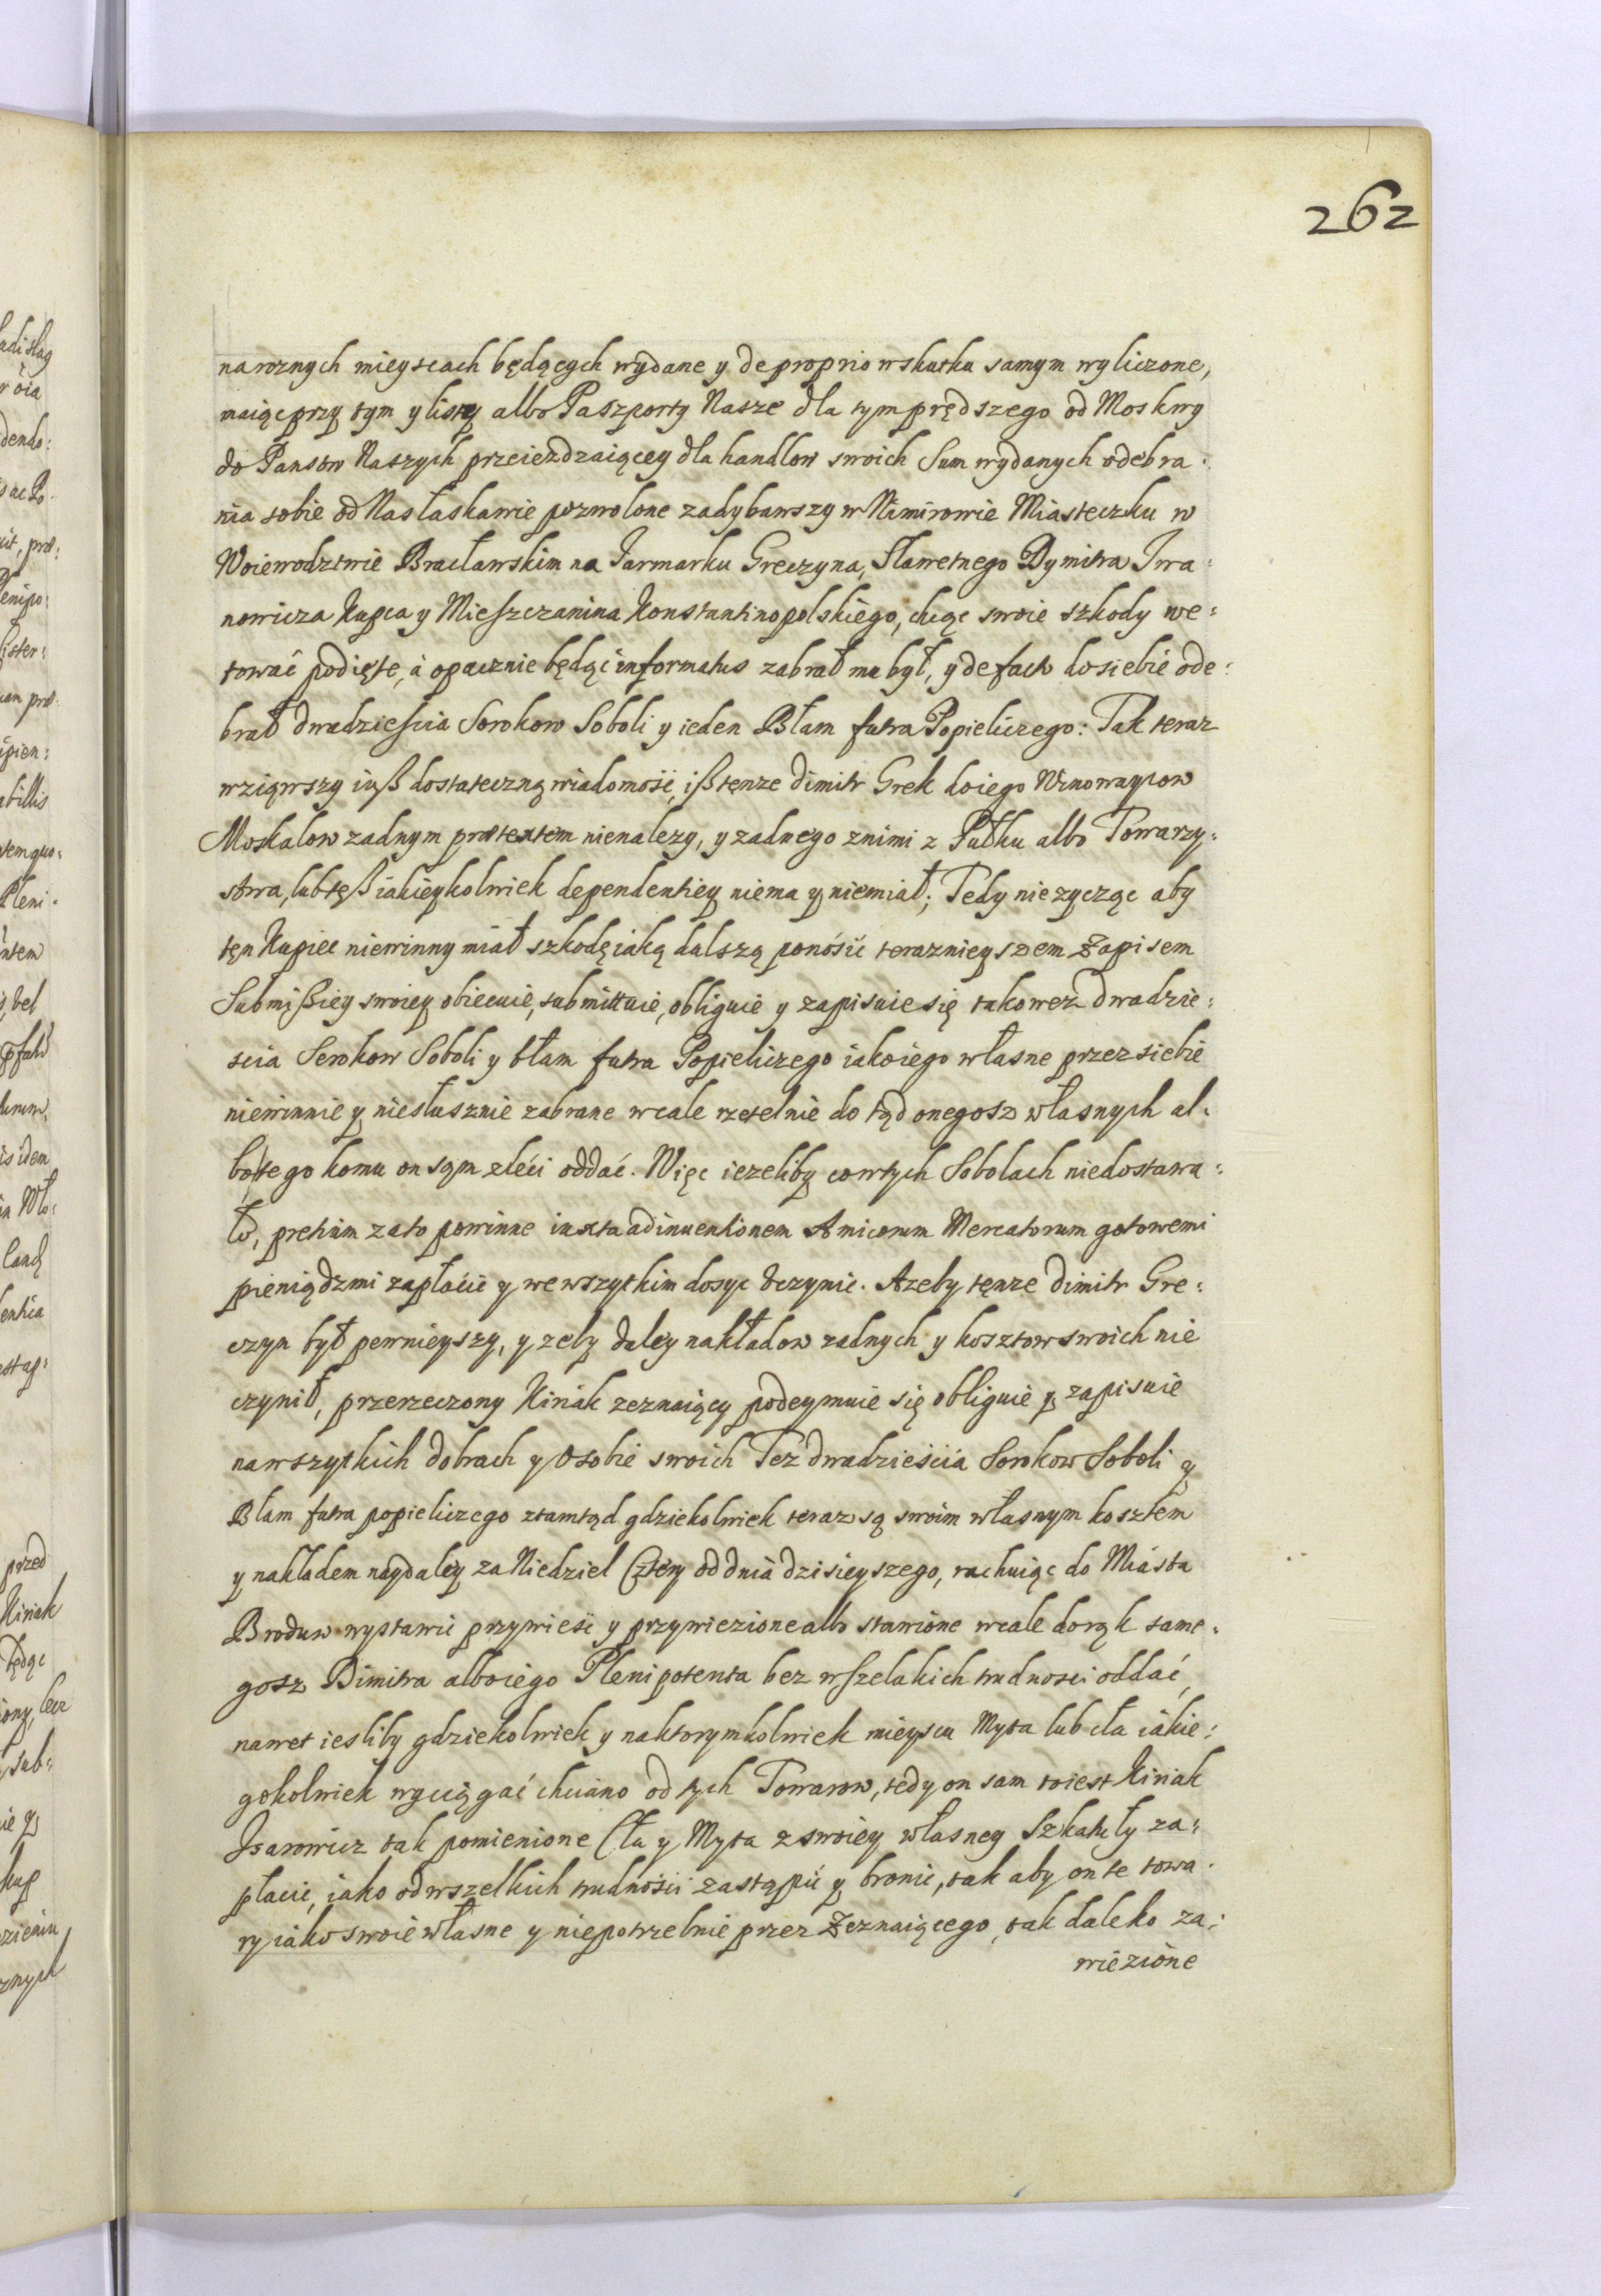 262
na roznych mieyscach będących wydane y de proprio w skutku samym wyliczone,
maiąc przy tym y listy albo Paszporty Nasze dla tym prędszego od Moskwy
do Panstw Naszych przeiezdzaiącey dla handlow swoich Sum wydanych odebra:
nia sobie od Nas łaskawie pozwolone zadybawszy w Nimirowie Miasteczku w
Woiewodztwie Bracławskim na Jarmarku Greczyna, Sławetnego Dymitra Iwa:
nowicza Kupca y Mieszczanina Konstantinopolskiego, chcąc swoie szkody we:
tować podięte, à opacznie będąc informatus zabrał mu był, y de facto do siebie ode:
brał dwadziescia Sorokow Soboli y ieden Błam futra Popieliczego: Tak teraz
wziąwszy iuß dostateczną wiadomość, iß tęnze dimitr Grek do iego Winowaycow
Moskalow zadnym prætextem nienalezy, y zadnego z nimi z Pułku albo Towarzy:
stwa, lub tęß iakieykolwiek dependentiey niema y niemiał; Tedy nie zycząc aby
tęn Kupiec niewinny miał szkodę iaką dalszą ponosić terazniegszem Zapisem
Submißiey swoiey obiecuie, submittuie, obliguie y zapisuie się takowez dwadzie:
scia Sorokow Soboli y błam futra Popieliczego iako iego własne przez siebie
niewinnie y niesłusznie zabrane wcale rzetelnie do rąd onegosz własnych al:
bo tego komu on sąm zleci oddać. Więc iezeliby co w tych Sobolach niedostawa:
ło, pretium za to powinne iuxta adinuentionem Amicorum Mercatorum gotowemi
pieniądzmi zapłacić y we wszytkim dosyc uczynic. Azeby tęnze dimitr Gre:
czyn był pewnieyszy, y zeby daley nakładow zadnych y kosztow swoich nie
czynił, przerzeczony Kiriak zeznaiący podeymuie się obliguie y zapisuie
na wszytkich dobrach y Osobie swoich Tez dwadziescia Sorokow Soboli y
Błam futra popieliczego ztamtąd gdziekolwiek teraz są swoim własnym kosztem
y nakładem naydaley za Niedziel Cztery od dnia dzisieyszego, rachuiąc do Miasta
Broduw wystawić przywieść y przywiezione albo stawione wcale do rąk same:
gosz Dimitra albo iego Plenipotenta bez wszelakich trudnosci oddać,
nawet iesliby gdziekolwiek y naktorymkolwiek mieyscu Myta lub cła iakie:
gokolwiek wyciągać chciano od tych Towarow, tedy on sam to iest Kiriak
Isarowicz tak pomienione Cła y Myta z swoiey własney Szkatuły za:
płacic, iako od wszelkich trudności zastąpić y bronic, tak aby on te towa:
ry iako swoie własne y niepotrzebnie przez Zeznaiącego, tak daleko za:
wiezione